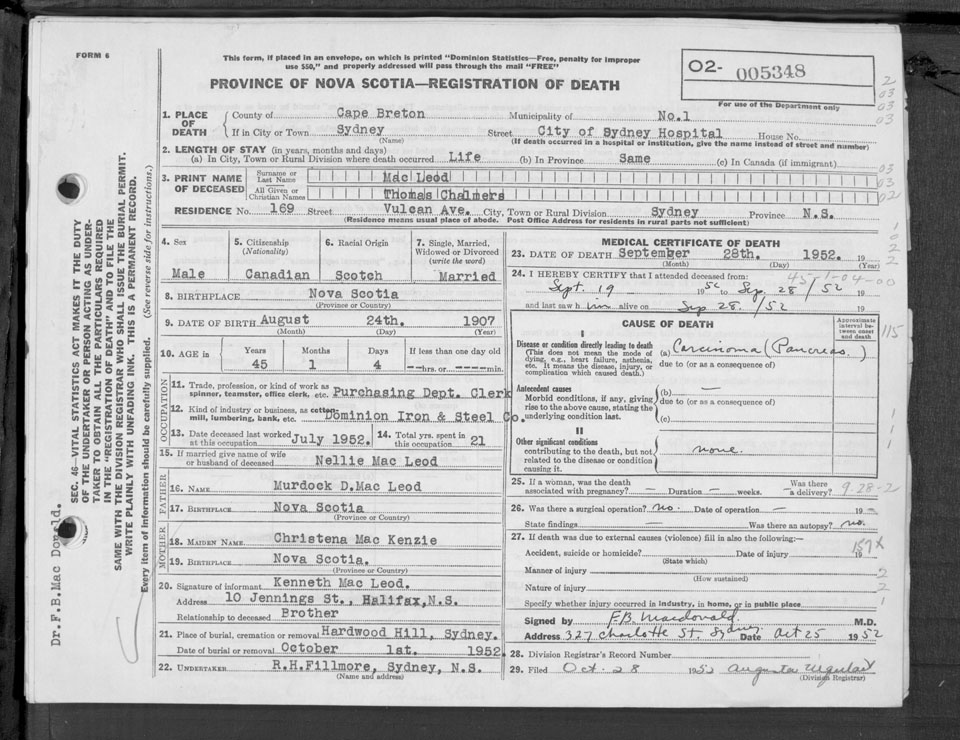 FORM 6
This form, if placed in an envelope, on which is printed "Dominion Statistics—Free, penalty for improper
use $50," and properly addressed will pass through the mail "FREE"
PROVINCE OF NOVA SCOTIA—REGISTRATION OF DEATH
O2- 005348
For use of the Department only
1. PLACE OF DEATH
County of Cape Breton Municipality of No.1
If in City or Town Sydney Street City of Sydney Hospital House No.
(Name) (If death occurred in a hospital or institution, give the name instead of street and number)
2. LENGTH OF STAY (in years, months and days)
(a) In City, Town or Rural Division where death occurred Life (b) In Province Same (c) In Canada (if immigrant)
3. PRINT NAME OF DECEASED
Surname or Last Name Mac Leod
All Given or Christian Names Thomas Chalmers
RESIDENCE No. 169 Street Vulcan Ave. City, Town or Rural Division Sydney Province N.S.
(Residence means usual place of abode. Post Office Address for residents in rural parts not sufficient)
4. Sex
Male
5. Citizenship
(Nationality)
Canadian
6. Racial Origin
Scotch
7. Single, Married,
Widowed or Divorced
(write the word)
Married
8. BIRTHPLACE Nova Scotia
(Province or Country)
9. DATE OF BIRTH August 24th. 1907
(Month) (Day) (Year)
10. AGE in Years Months Days If less than one day old
45 1 4 --hrs. or ----min.
OCCUPATION
11. Trade, profession, or kind of work as
spinner, teamster, office clerk, etc. Purchasing Dept. Clerk
12. Kind of industry or business, as cotton-
mill, lumbering, bank, etc. Dominion Iron & Steel Co.
13. Date deceased last worked
at this occupation July 1952.
14. Total yrs. spent in
this occupation 21
15. If married give name of wife
or husband of deceased Nellie Mac Leod
FATHER
16. NAME Murdock D.Mac Leod
17. BIRTHPLACE Nova Scotia
(Province or Country)
MOTHER
18. MAIDEN NAME Christena Mac Kenzie
19. BIRTHPLACE Nova Scotia.
(Province or Country)
20. Signature of informant Kenneth Mac Leod.
Address 10 Jennings St., Halifax,N.S.
Relationship to deceased Brother
21. Place of burial, cremation or removal Hardwood Hill, Sydney.
Date of burial or removal October 1st. 1952.
22. UNDERTAKER R.H.Fillmore, Sydney, N.S.
(Name and address)
MEDICAL CERTIFICATE OF DEATH
23. DATE OF DEATH September 28th. 1952.
(Month) (Day) (Year)
24. I HEREBY CERTIFY that I attended deceased from:
45-1-04-00
Sept. 19 1952 to Sep. 28/52 19
and last saw him alive on Sep 28./52 19
CAUSE OF DEATH
Approximate interval between onset and death
I
Disease or condition directly leading to death
(This does not mean the mode of
dying, e.g., heart failure, asthenia,
etc. It means the disease, injury, or
complication which caused death.)
(a) Carcinoma (Pancreas.)
due to (or as a consequence of)
Antecedent causes
Morbid conditions, if any, giving
rise to the above cause, stating the
underlying condition last.
(b) —
due to (or as a consequence of)
(c)
II
Other significant conditions
contributing to the death, but not
related to the disease or condition
causing it.
none.
25. If a woman, was the death
associated with pregnancy? — Duration — weeks. Was there
a delivery? 9-28-2
26. Was there a surgical operation? no. Date of operation — 19
State findings — Was there an autopsy? no.
27. If death was due to external causes (violence) fill in also the following:—
Accident, suicide or homicide? Date of injury 19
(State which)
157x
Manner of injury
(How sustained)
Nature of injury
Specify whether injury occurred in industry, in home, or in public place
Signed by F.B. Macdonald. M.D.
Address 327 Charlotte St. Sydney Date Oct 25 1952
28. Division Registrar's Record Number
29. Filed Oct. 28 1952 Augusta
(Division Registrar)
SEC. 46—VITAL STATISTICS ACT MAKES IT THE DUTY
OF THE UNDERTAKER OR PERSON ACTING AS UNDER-
TAKER TO OBTAIN ALL THE PARTICULARS REQUIRED
IN THE "REGISTRATION OF DEATH" AND TO FILE THE
SAME WITH THE DIVISION REGISTRAR WHO SHALL ISSUE THE BURIAL PERMIT.
WRITE PLAINLY WITH UNFADING INK. THIS IS A PERMANENT RECORD.
Every item of information should be carefully supplied. (See reverse side for instructions.)
Dr.F.B.Mac Donald.